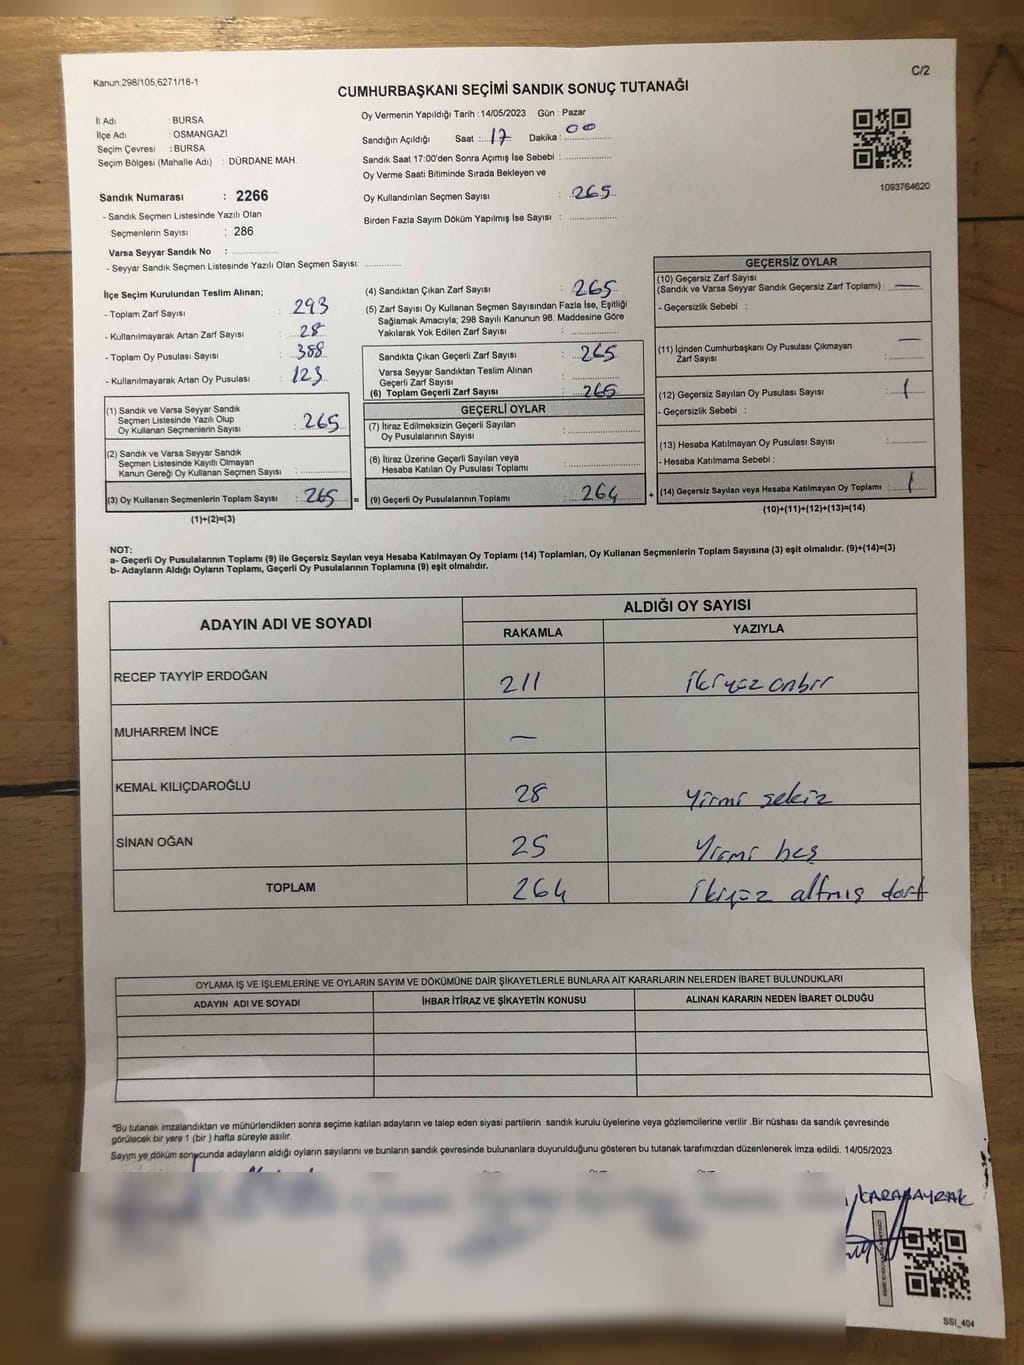 Kanun:298/105,6271/18-1
C/2
CUMHURBAŞKANI SEÇİMİ SANDIK SONUÇ TUTANAĞI
İl Adı : BURSA
İlçe Adı : OSMANGAZİ
Seçim Çevresi : BURSA
Seçim Bölgesi (Mahalle Adı) : DÜRDANE MAH.
Sandık Numarası : 2266
- Sandık Seçmen Listesinde Yazılı Olan
Seçmenlerin Sayısı : 286
Varsa Seyyar Sandık No :
- Seyyar Sandık Seçmen Listesinde Yazılı Olan Seçmen Sayısı:
Oy Vermenin Yapıldığı Tarih : 14/05/2023 Gün : Pazar
Sandığın Açıldığı Saat : 17 Dakika : 00
Sandık Saat 17:00'den Sonra Açımış İse Sebebi :
Oy Verme Saati Bitiminde Sırada Bekleyen ve
Oy Kullandırılan Seçmen Sayısı : 265
Birden Fazla Sayım Döküm Yapılmış İse Sayısı :
1093764620
İlçe Seçim Kurulundan Teslim Alınan;
- Toplam Zarf Sayısı : 293
- Kullanılmayarak Artan Zarf Sayısı : 28
- Toplam Oy Pusulası Sayısı : 388
- Kullanılmayarak Artan Oy Pusulası : 123
(1) Sandık ve Varsa Seyyar Sandık
Seçmen Listesinde Yazılı Olup
Oy Kullanan Seçmenlerin Sayısı : 265
(2) Sandık ve Varsa Seyyar Sandık
Seçmen Listesinde Kayıtlı Olmayan
Kanun Gereği Oy Kullanan Seçmen Sayısı :
(3) Oy Kullanan Seçmenlerin Toplam Sayısı : 265 =
(1)+(2)=(3)
(4) Sandıktan Çıkan Zarf Sayısı : 265
(5) Zarf Sayısı Oy Kullanan Seçmen Sayısından Fazla İse, Eşitliği
Sağlamak Amacıyla; 298 Sayılı Kanunun 98. Maddesine Göre
Yakılarak Yok Edilen Zarf Sayısı :
Sandıkta Çıkan Geçerli Zarf Sayısı : 265
Varsa Seyyar Sandıktan Teslim Alınan
Geçerli Zarf Sayısı :
(6) Toplam Geçerli Zarf Sayısı : 265
GEÇERLİ OYLAR
(7) İtiraz Edilmeksizin Geçerli Sayılan
Oy Pusulalarının Sayısı :
(8) İtiraz Üzerine Geçerli Sayılan veya
Hesaba Katılan Oy Pusulası Toplamı :
(9) Geçerli Oy Pusulalarının Toplamı : 264 +
GEÇERSİZ OYLAR
(10) Geçersiz Zarf Sayısı
(Sandık ve Varsa Seyyar Sandık Geçersiz Zarf Toplamı) : —
- Geçersizlik Sebebi :
(11) İçinden Cumhurbaşkanı Oy Pusulası Çıkmayan
Zarf Sayısı : —
(12) Geçersiz Sayılan Oy Pusulası Sayısı : 1
- Geçersizlik Sebebi :
(13) Hesaba Katılmayan Oy Pusulası Sayısı :
- Hesaba Katılmama Sebebi :
(14) Geçersiz Sayılan veya Hesaba Katılmayan Oy Toplamı : 1
(10)+(11)+(12)+(13)=(14)
NOT:
a- Geçerli Oy Pusulalarının Toplamı (9) ile Geçersiz Sayılan veya Hesaba Katılmayan Oy Toplamı (14) Toplamları, Oy Kullanan Seçmenlerin Toplam Sayısına (3) eşit olmalıdır. (9)+(14)=(3)
b- Adayların Aldığı Oyların Toplamı, Geçerli Oy Pusulalarının Toplamına (9) eşit olmalıdır.
ADAYIN ADI VE SOYADI ALDIĞI OY SAYISI
RAKAMLA YAZIYLA
RECEP TAYYİP ERDOĞAN 211 ikiyüz onbir
MUHARREM İNCE —
KEMAL KILIÇDAROĞLU 28 Yirmi sekiz
SİNAN OĞAN 25 Yirmi beş
TOPLAM 264 ikiyüz altmış dört
OYLAMA İŞ VE İŞLEMLERİNE VE OYLARIN SAYIM VE DÖKÜMÜNE DAİR ŞİKAYETLERLE BUNLARA AİT KARARLARIN NELERDEN İBARET BULUNDUKLARI
ADAYIN ADI VE SOYADI İHBAR İTİRAZ VE ŞİKAYETİN KONUSU ALINAN KARARIN NEDEN İBARET OLDUĞU
*Bu tutanak imzalandıktan ve mühürlendikten sonra seçime katılan adayların ve talep eden siyasi partilerin sandık kurulu üyelerine veya gözlemcilerine verilir .Bir nüshası da sandık çevresinde
görülecek bir yere 1 (bir ) hafta süreyle asılır.
Sayım ve döküm sonucunda adayların aldığı oyların sayılarını ve bunların sandık çevresinde bulunanlara duyurulduğunu gösteren bu tutanak tarafımızdan düzenlenerek imza edildi. 14/05/2023
KARABAYRAK
SSI_404